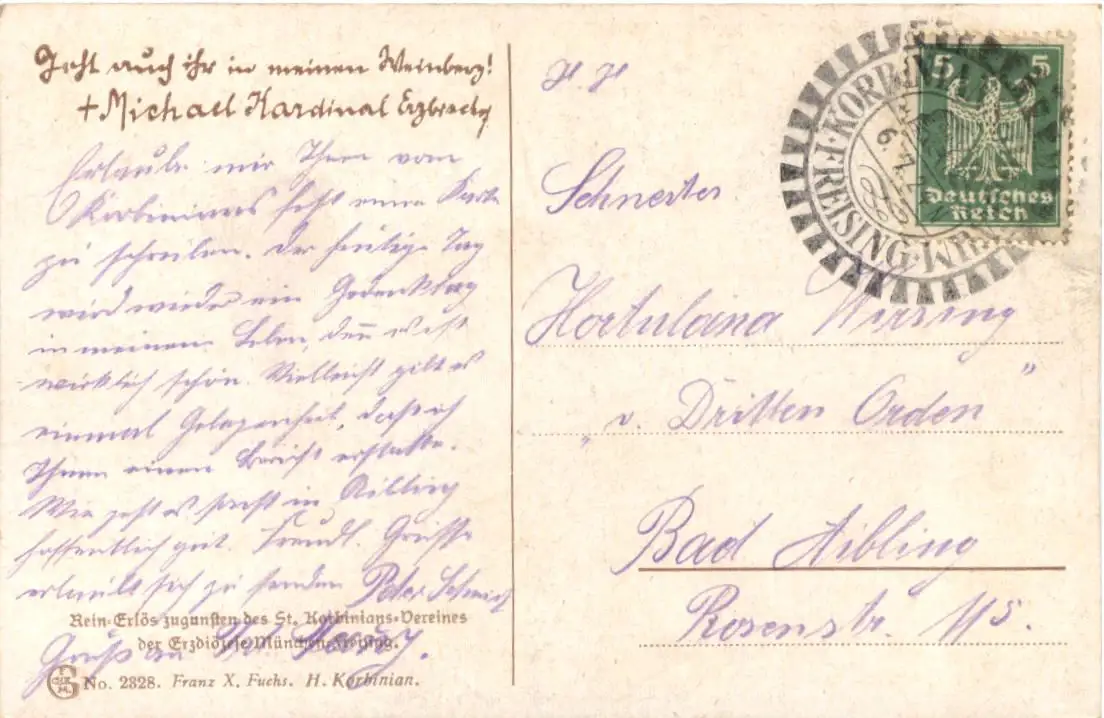 Geht auch ihr in meinen Weinberg!
+ Michael Kardinal Erzbischof
Erlaube mir Ihnen vom
Korbinians fest eine Karte
zu schreiben. Der heutige Tag
wird wieder ein Gedenktag
in meinem Leben, denn es ist
wirklich schön. Vielleicht gibt es
einmal Gelegenheit, daß ich
Ihnen einen Bericht erstatte.
Wie geht es sonst in Aibling
hoffentlich gut. Freundl. Grüsse
erlaubt sich zu senden Peter
Rein-Erlös zugunsten des St. Korbinians-Vereines
der Erzdiözese München-Freising.
Gruß an
No. 2328. Franz X. Fuchs. H. Korbinian.
H. H
Schwester
Hortulana Wirsing
"v. Dritten Orden"
Bad Aibling
Rosenstr. 115.
5 5
Deutsches
Reich
FREISING
6. 7. 24